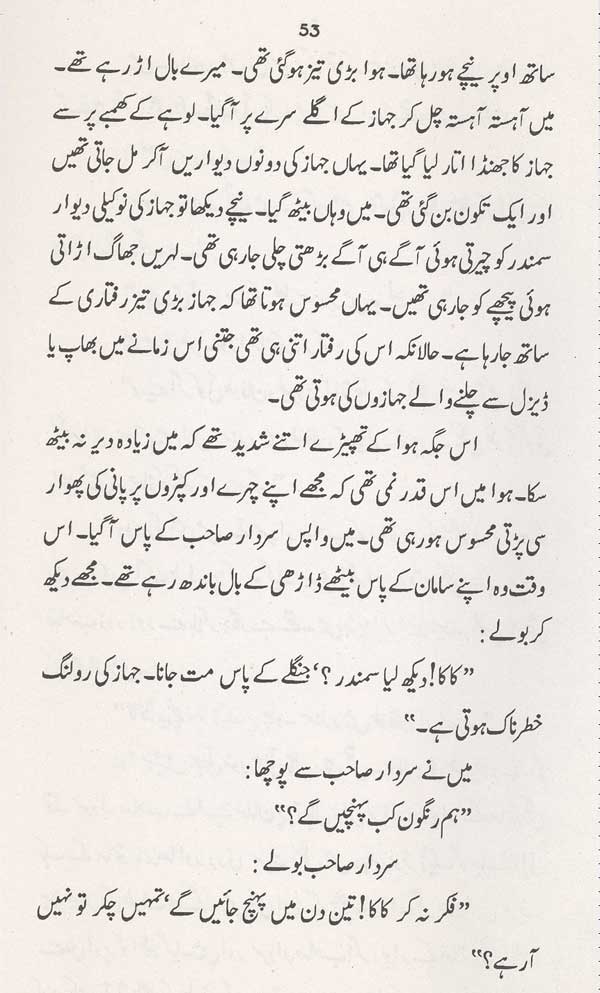 53
ساتھ اوپر نیچے ہو رہا تھا۔ ہوا بڑی تیز ہو گئی تھی۔ میرے بال اڑ رہے تھے۔
میں آہستہ آہستہ چل کر جہاز کے اگلے سرے پر آ گیا۔ لوہے کے کھمبے پر سے
جہاز کا جھنڈا اتار لیا گیا تھا۔ یہاں جہاز کی دونوں دیواریں آکر مل جاتی تھیں
اور ایک تکون بن گئی تھی۔ میں وہاں بیٹھ گیا۔ نیچے دیکھا تو جہاز کی نوکیلی دیوار
سمندر کو چیرتی ہوئی آگے ہی آگے بڑھتی چلی جا رہی تھی۔ لہریں جھاگ اڑاتی
ہوئی پیچھے کو جا رہی تھیں۔ یہاں محسوس ہوتا تھا کہ جہاز بڑی تیز رفتاری کے
ساتھ جا رہا ہے۔ حالانکہ اس کی رفتار اتنی ہی تھی جتنی اس زمانے میں بھاپ یا
ڈیزل سے چلنے والے جہازوں کی ہوتی تھی۔
اس جگہ ہوا کے تھپیڑے اتنے شدید تھے کہ میں زیادہ دیر نہ بیٹھ
سکا۔ ہوا میں اس قدر نمی تھی کہ مجھے اپنے چہرے اور کپڑوں پر پانی کی پھوار
سی پڑتی محسوس ہو رہی تھی۔ میں واپس سردار صاحب کے پاس آ گیا۔ اس
وقت وہ اپنے سامان کے پاس بیٹھے ڈاڑھی کے بال باندھ رہے تھے۔ مجھے دیکھ
کر بولے:
”کاکا! دیکھ لیا سمندر؟‘ جنگلے کے پاس مت جانا۔ جہاز کی رولنگ
خطرناک ہوتی ہے۔“
میں نے سردار صاحب سے پوچھا:
”ہم رنگون کب پہنچیں گے؟“
سردار صاحب بولے:
”فکر نہ کر کاکا! تین دن میں پہنچ جائیں گے‘ تمہیں چکر تو نہیں
آ رہے؟“